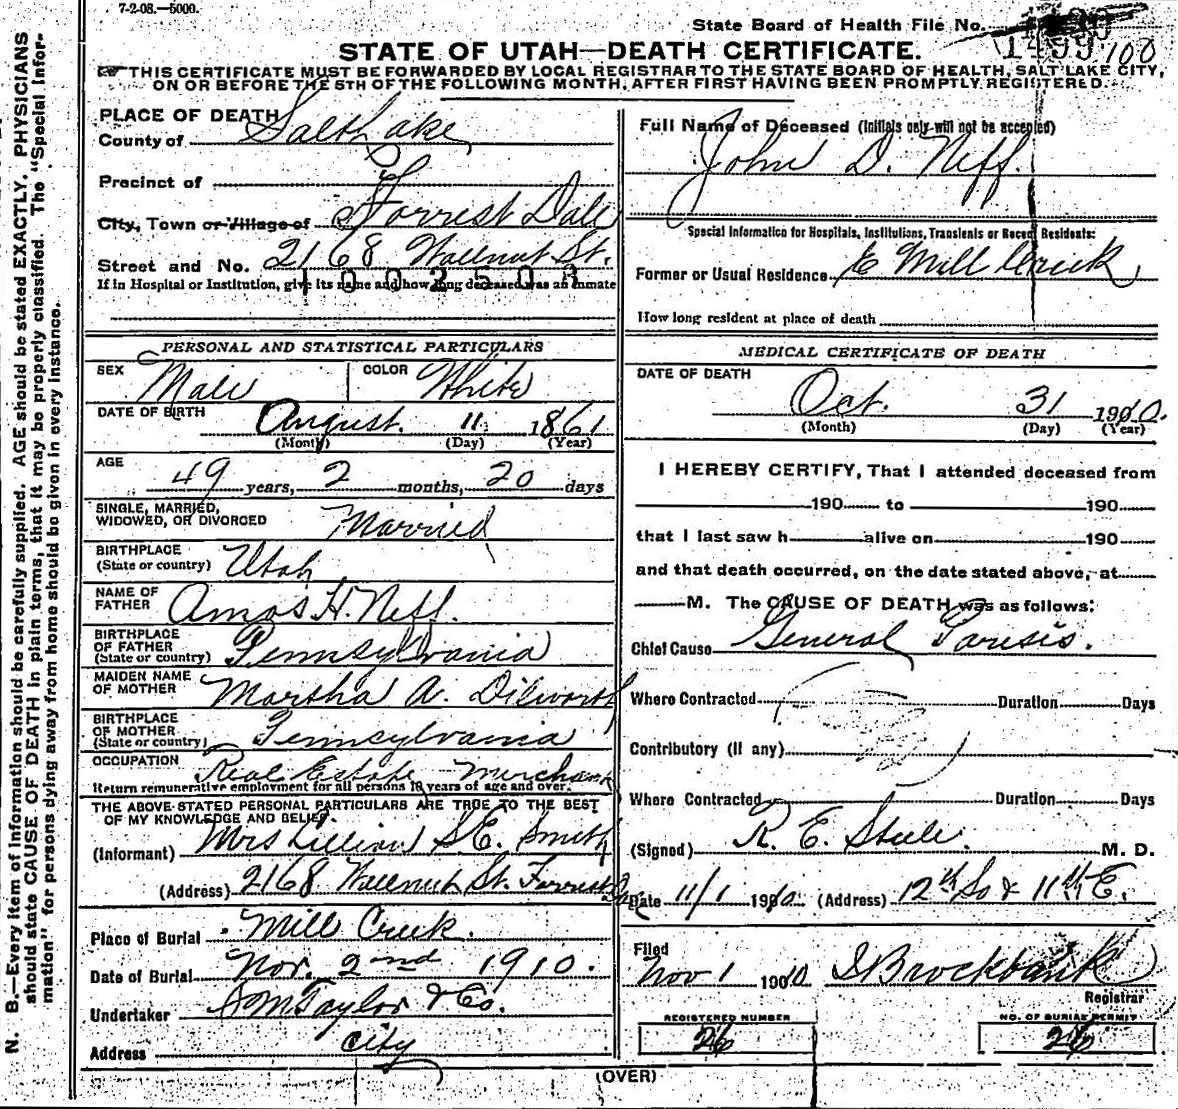 7-2-08.—5000.
State Board of Health File No.
1499 100
STATE OF UTAH—DEATH CERTIFICATE.
THIS CERTIFICATE MUST BE FORWARDED BY LOCAL REGISTRAR TO THE STATE BOARD OF HEALTH, SALT LAKE CITY,
ON OR BEFORE THE 5TH OF THE FOLLOWING MONTH, AFTER FIRST HAVING BEEN PROMPTLY REGISTERED.
N. B.—Every item of information should be carefully supplied. AGE should be stated EXACTLY. PHYSICIANS
should state CAUSE OF DEATH in plain terms, that it may be properly classified. The "Special Infor-
mation" for persons dying away from home should be given in every instance.
PLACE OF DEATH
County of Salt Lake
Precinct of
City, Town or Village of Forrest Dale
Street and No. 2168 Wallnut St.
If in Hospital or Institution, give its name and how long deceased was an inmate
1002503
PERSONAL AND STATISTICAL PARTICULARS
SEX Male COLOR White
DATE OF BIRTH August 11 1861
(Month) (Day) (Year)
AGE 49 years, 2 months, 20 days
SINGLE, MARRIED,
WIDOWED, OR DIVORCED Married
BIRTHPLACE
(State or country) Utah
NAME OF
FATHER Amos H. Neff.
BIRTHPLACE
OF FATHER
(State or country) Pennsylvania
MAIDEN NAME
OF MOTHER Martha A. Dilworth
BIRTHPLACE
OF MOTHER
(State or country) Pennsylvania
OCCUPATION Real Estate Merchant
Return remunerative employment for all persons 10 years of age and over.
THE ABOVE-STATED PERSONAL PARTICULARS ARE TRUE TO THE BEST
OF MY KNOWLEDGE AND BELIEF.
(Informant) Mrs Lillian S. E. Smith
(Address) 2168 Wallnut St. Forrest Dale
Place of Burial Mill Creek.
Date of Burial Nov. 2nd 1910.
Undertaker S M Taylor & Co.
Address City
Full Name of Deceased (Initials only will not be accepted)
John D. Neff.
Special Information for Hospitals, Institutions, Transients or Recent Residents:
Former or Usual Residence E Mill Creek
How long resident at place of death
MEDICAL CERTIFICATE OF DEATH
DATE OF DEATH
Oct. 31 1910.
(Month) (Day) (Year)
I HEREBY CERTIFY, That I attended deceased from
190 to 190
that I last saw h alive on 190
and that death occurred, on the date stated above, at
M. The CAUSE OF DEATH was as follows:
Chief Cause General Paresis.
Where Contracted Duration Days
Contributory (if any)
Where Contracted Duration Days
(Signed) R. E. Steele. M. D.
Date 11/1 1910. (Address) 12th So & 11th E.
Filed
Nov 1 1910 I Brockbank
Registrar
REGISTERED NUMBER
26
NO. OF BURIAL PERMIT
26
(OVER)